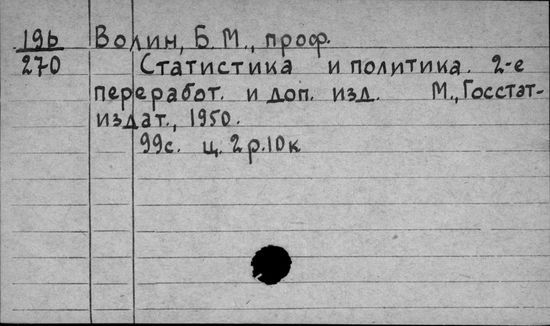 19б Волин, Б. М., проф.
270 Статистика и политика. 2-е
переработ. и доп. изд. М., Госстат-
издат., 1950.
99с. ц. 2р.10к